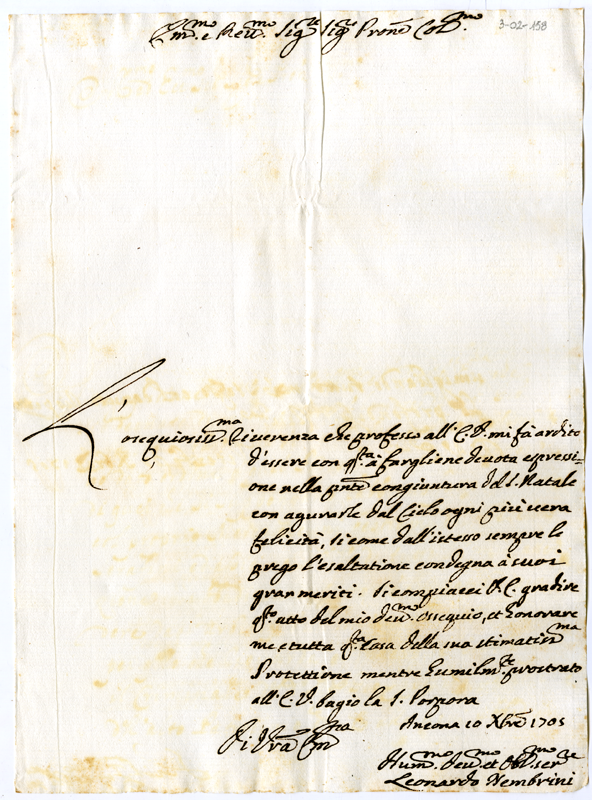 3-02-158
Em.mo e Reu.mo Sig.re Sig.re Pron̄e Col.mo
L'osequiosiss.ma Riuerenza che professo all'E.V. mi fà ardito
d'essere con q.sta à fargliene deuota espressi=
one nella pn̄te congiuntura del S. Natale
con agurarle dal Cielo ogni più uera
felicità, si come dall'istesso sempre le
prego l'esaltatione condegna à suoi
gran meriti. Si compiacci V.E. gradire
q.sto atto del mio deu.mo ossequio, et honorare
me e tutta q.sta Casa della sua stimatiss.ma
Protettione mentre humilm.te prostrato
all'E.V. bagio la S. Porpora
Ancona 10 Xbre 1705
Di Vr̄a Em.za
Hum.mo deu.mo et Obl.mo ser.re
Leonardo Nembrini